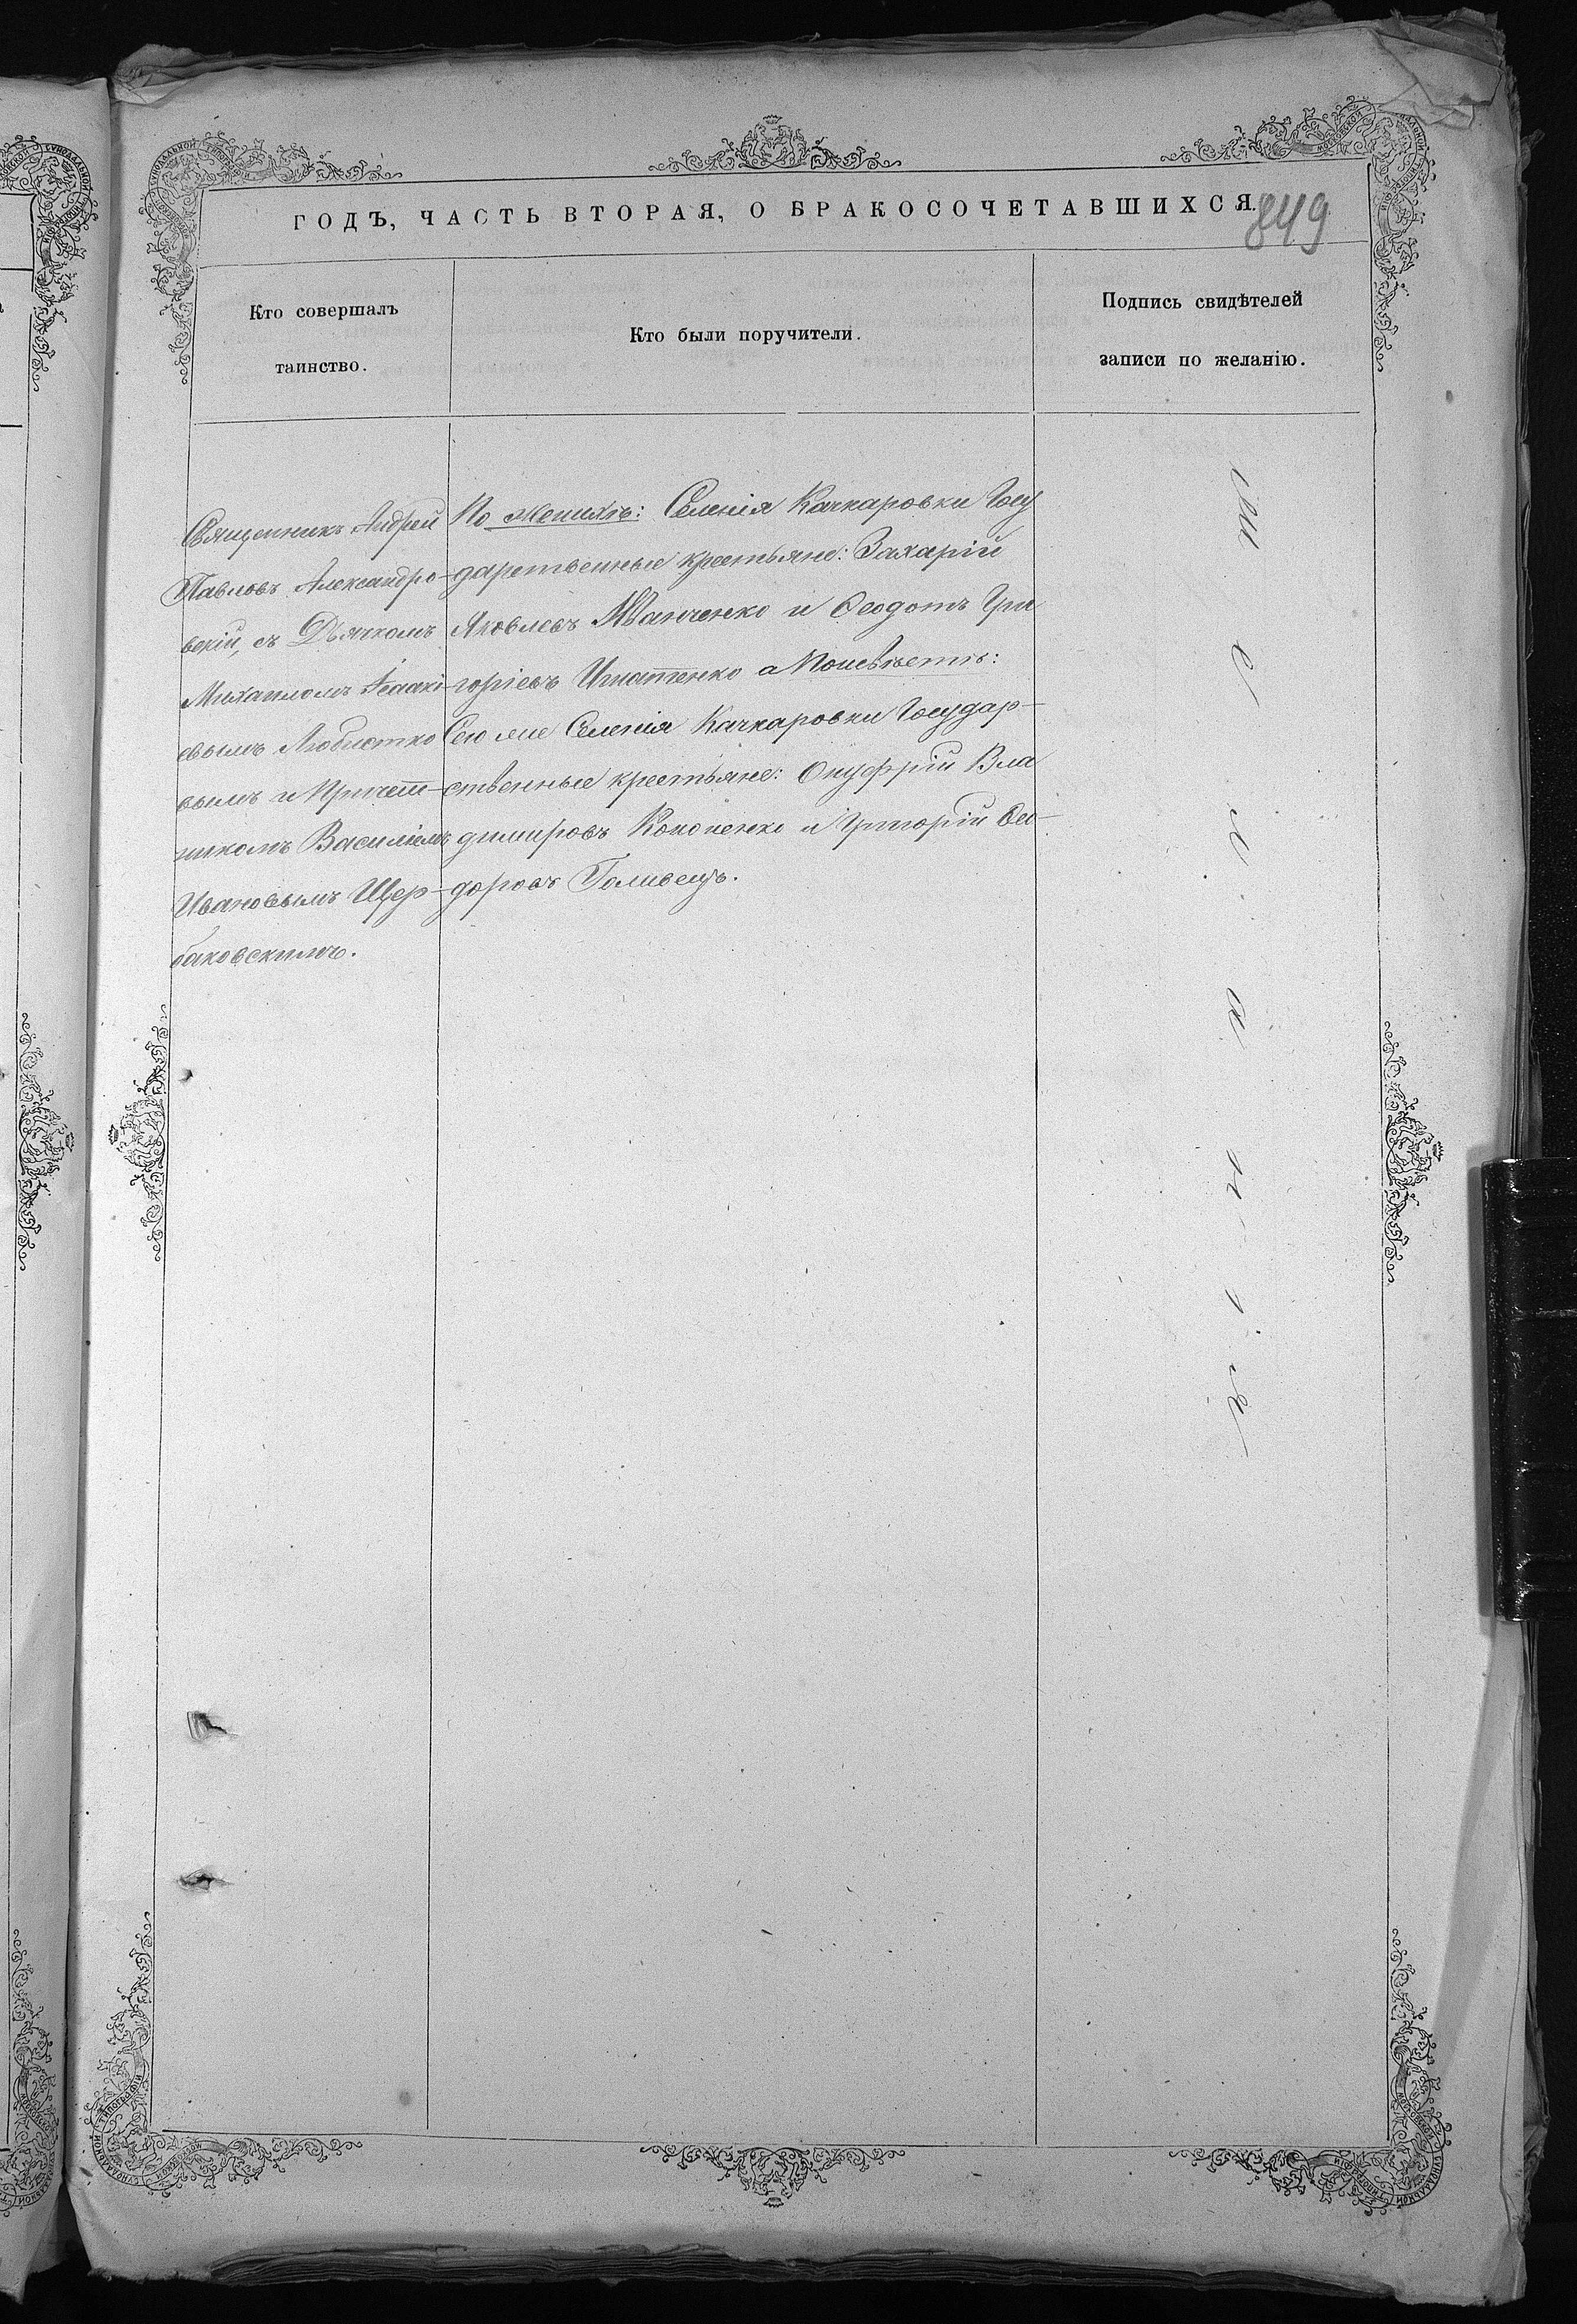 ГОДЪ, ЧАСТЬ ВТОРАЯ, О БРАКОСОЧЕТАВШИХСЯ.
849
Кто совершалъ
таинство.
Кто были поручители.
Подпись свидѣтелей
записи по желанію.
Священникъ Андрей
Павловъ Александро-
вскій, съ Дьячкомъ
Михаиломъ Исаакі-
евымъ Любистко
вымъ и Причет-
никомъ Василіемъ
Ивановымъ Щер-
баковскимъ.
По женихѣ: Селенія Качкаровки Госу
дарственные крестьяне: Захарій
Яковлевъ Иванченко и Ѳеодотъ Гри
горіевъ Игнатенко а По невѣстѣ:
Сего же Селенія Качкаровки Государ-
ственные крестьяне: Онуфрій Вла
димировъ Кононенко и Григорій Ѳео-
доровъ Голивецъ.